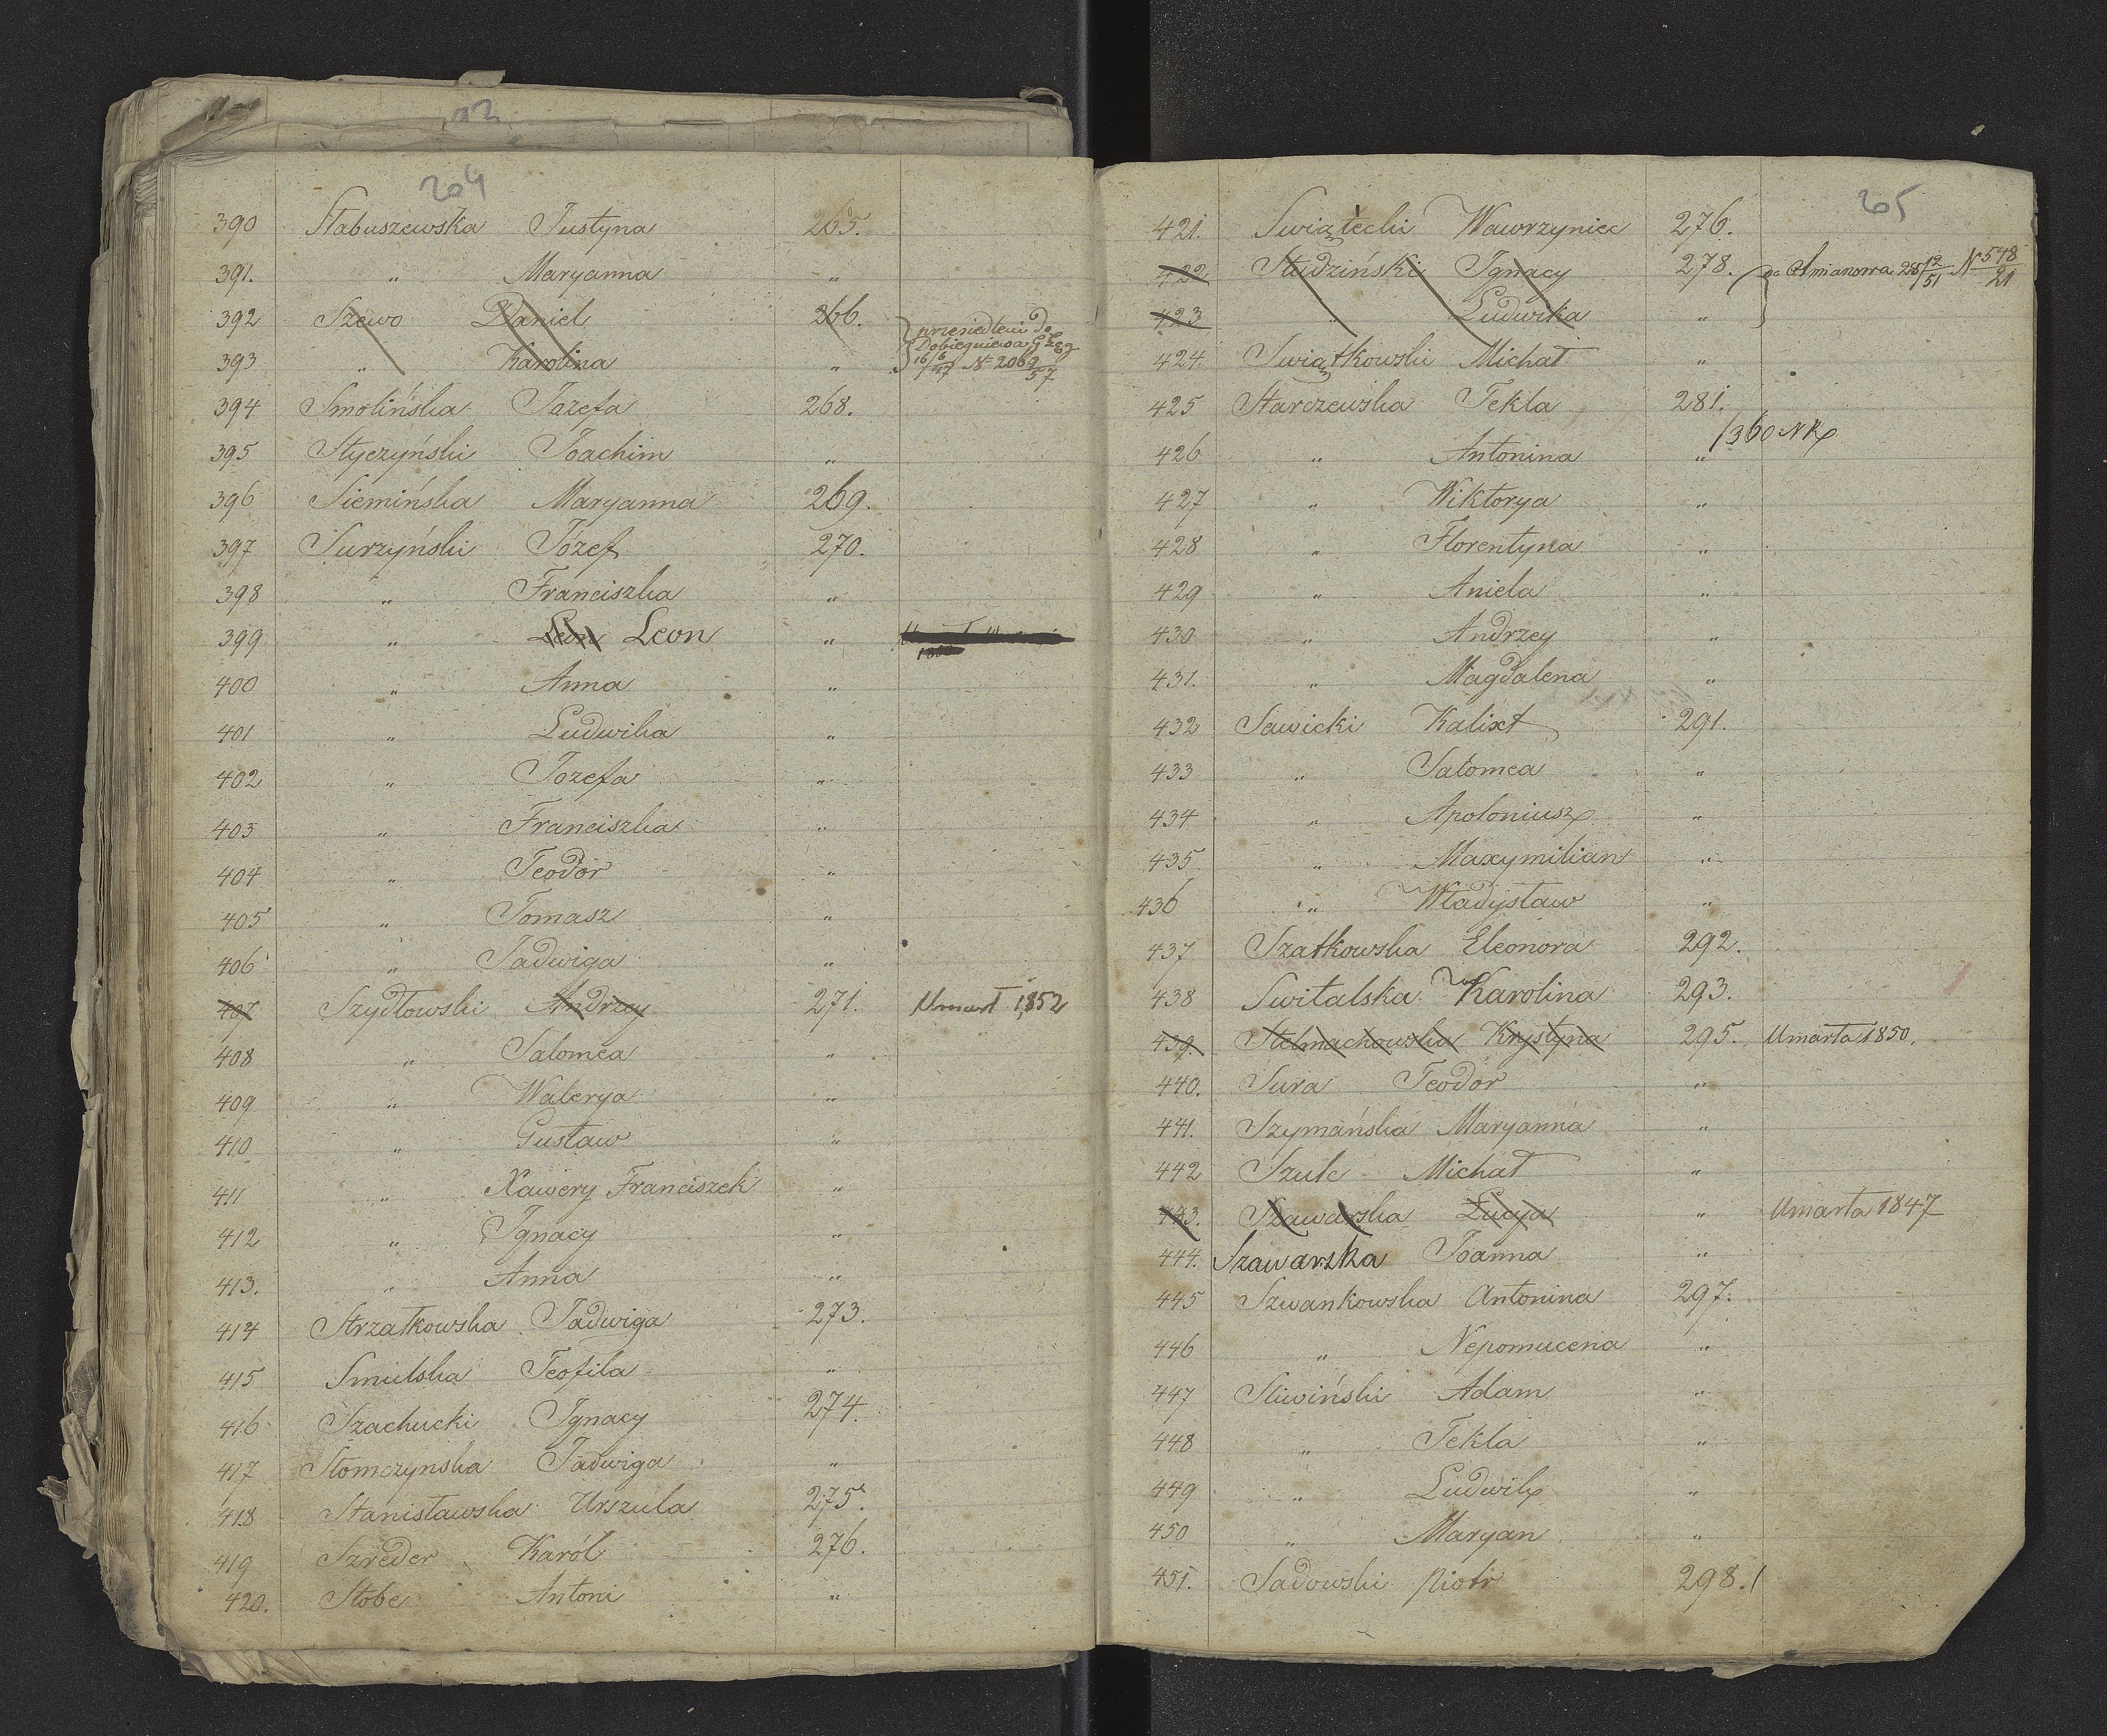 93
204
390 Słabuszewska Justyna 265.
391. " Maryanna "
392 Szewo Daniel 266. przesiedleni do
393 " Karolina " Dobiegniewa G
16/6 57 N 2069/57
394 Smolińska Józefa 268.
395 Styczyński Joachim "
396 Siemińska Maryanna 269.
397 Surzyński Józef 270.
398 " Franciszka "
399 " Leon Leon "
400 " Anna "
401 " Ludwika "
402 " Jozefa "
403 " Franciszka "
404 " Teodor "
405 " Tomasz "
406 " Jadwiga "
407 Szydłowski Andrzey 271. Umarł 1852
408 " Salomea "
409 " Walerya "
410 " Gustaw "
411 " Xawery Franciszek "
412 " Ignacy "
413. " Anna "
414 Strzałkowska Jadwiga 273.
415 Smulska Teofila "
416 Szachucki Ignacy 274.
417 Słomczynska Jadwiga "
418 Stanisławska Urszula 275.
419 Szreder Karól 276.
420. Stobe Antoni "
205
421. Swiątecki Wawrzyniec 276.
422 Studziński Ignacy 278. do Smianowa 28/12 51 N 548/21
423 " Ludwika "
424. Swiątkowski Michał "
425 Starczewska Tekla 281.
/360 NKp
426 " Antonina "
427 " Wiktorya "
428 " Florentyna "
429 " Aniela "
430 " Andrzey "
431. " Magdalena "
432 Sawicki Kalixt 291.
433 " Salomea "
434 " Apoloniusz "
435 " Maxymilian "
436 " Władysław "
437 Szatkowska Eleonora 292.
438 Switalska Karolina 293.
439. Stelmachowska Krystyna 295. Umarła 1850.
440. Sura Teodor "
441. Szymańska Maryanna "
442 Szulc Michał "
443. Szawarska Łucya " Umarła 1847
444. Szawarska Joanna "
445 Szwankowska Antonina 297.
446 " Nepomucena "
447 Sliwiński Adam "
448 " Tekla "
449 " Ludwik "
450 " Maryan "
451. Sadowski Piotr 298./